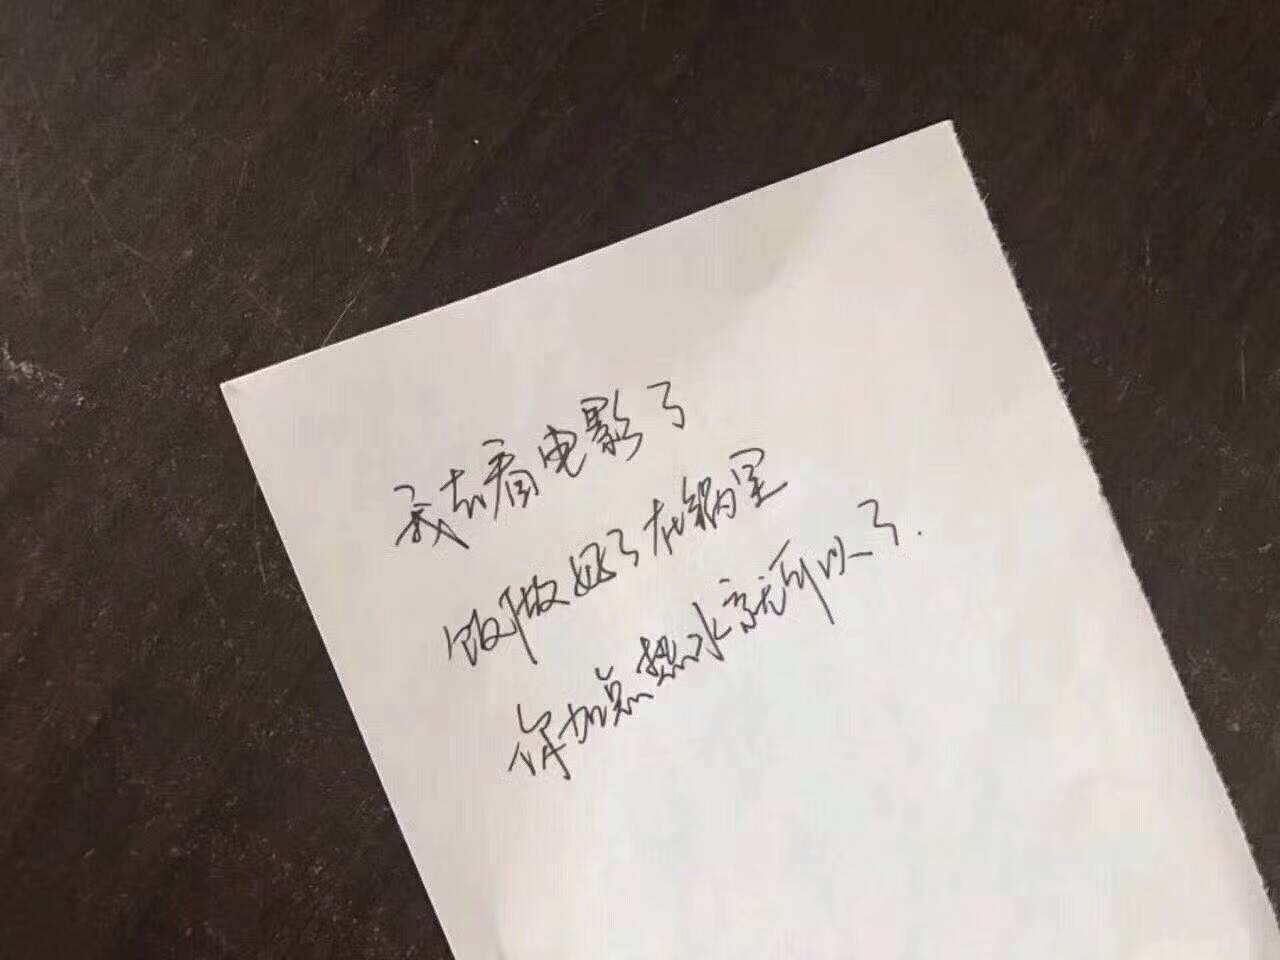 我去看电影了
饭做好了在锅里
你加点热水就可以了.